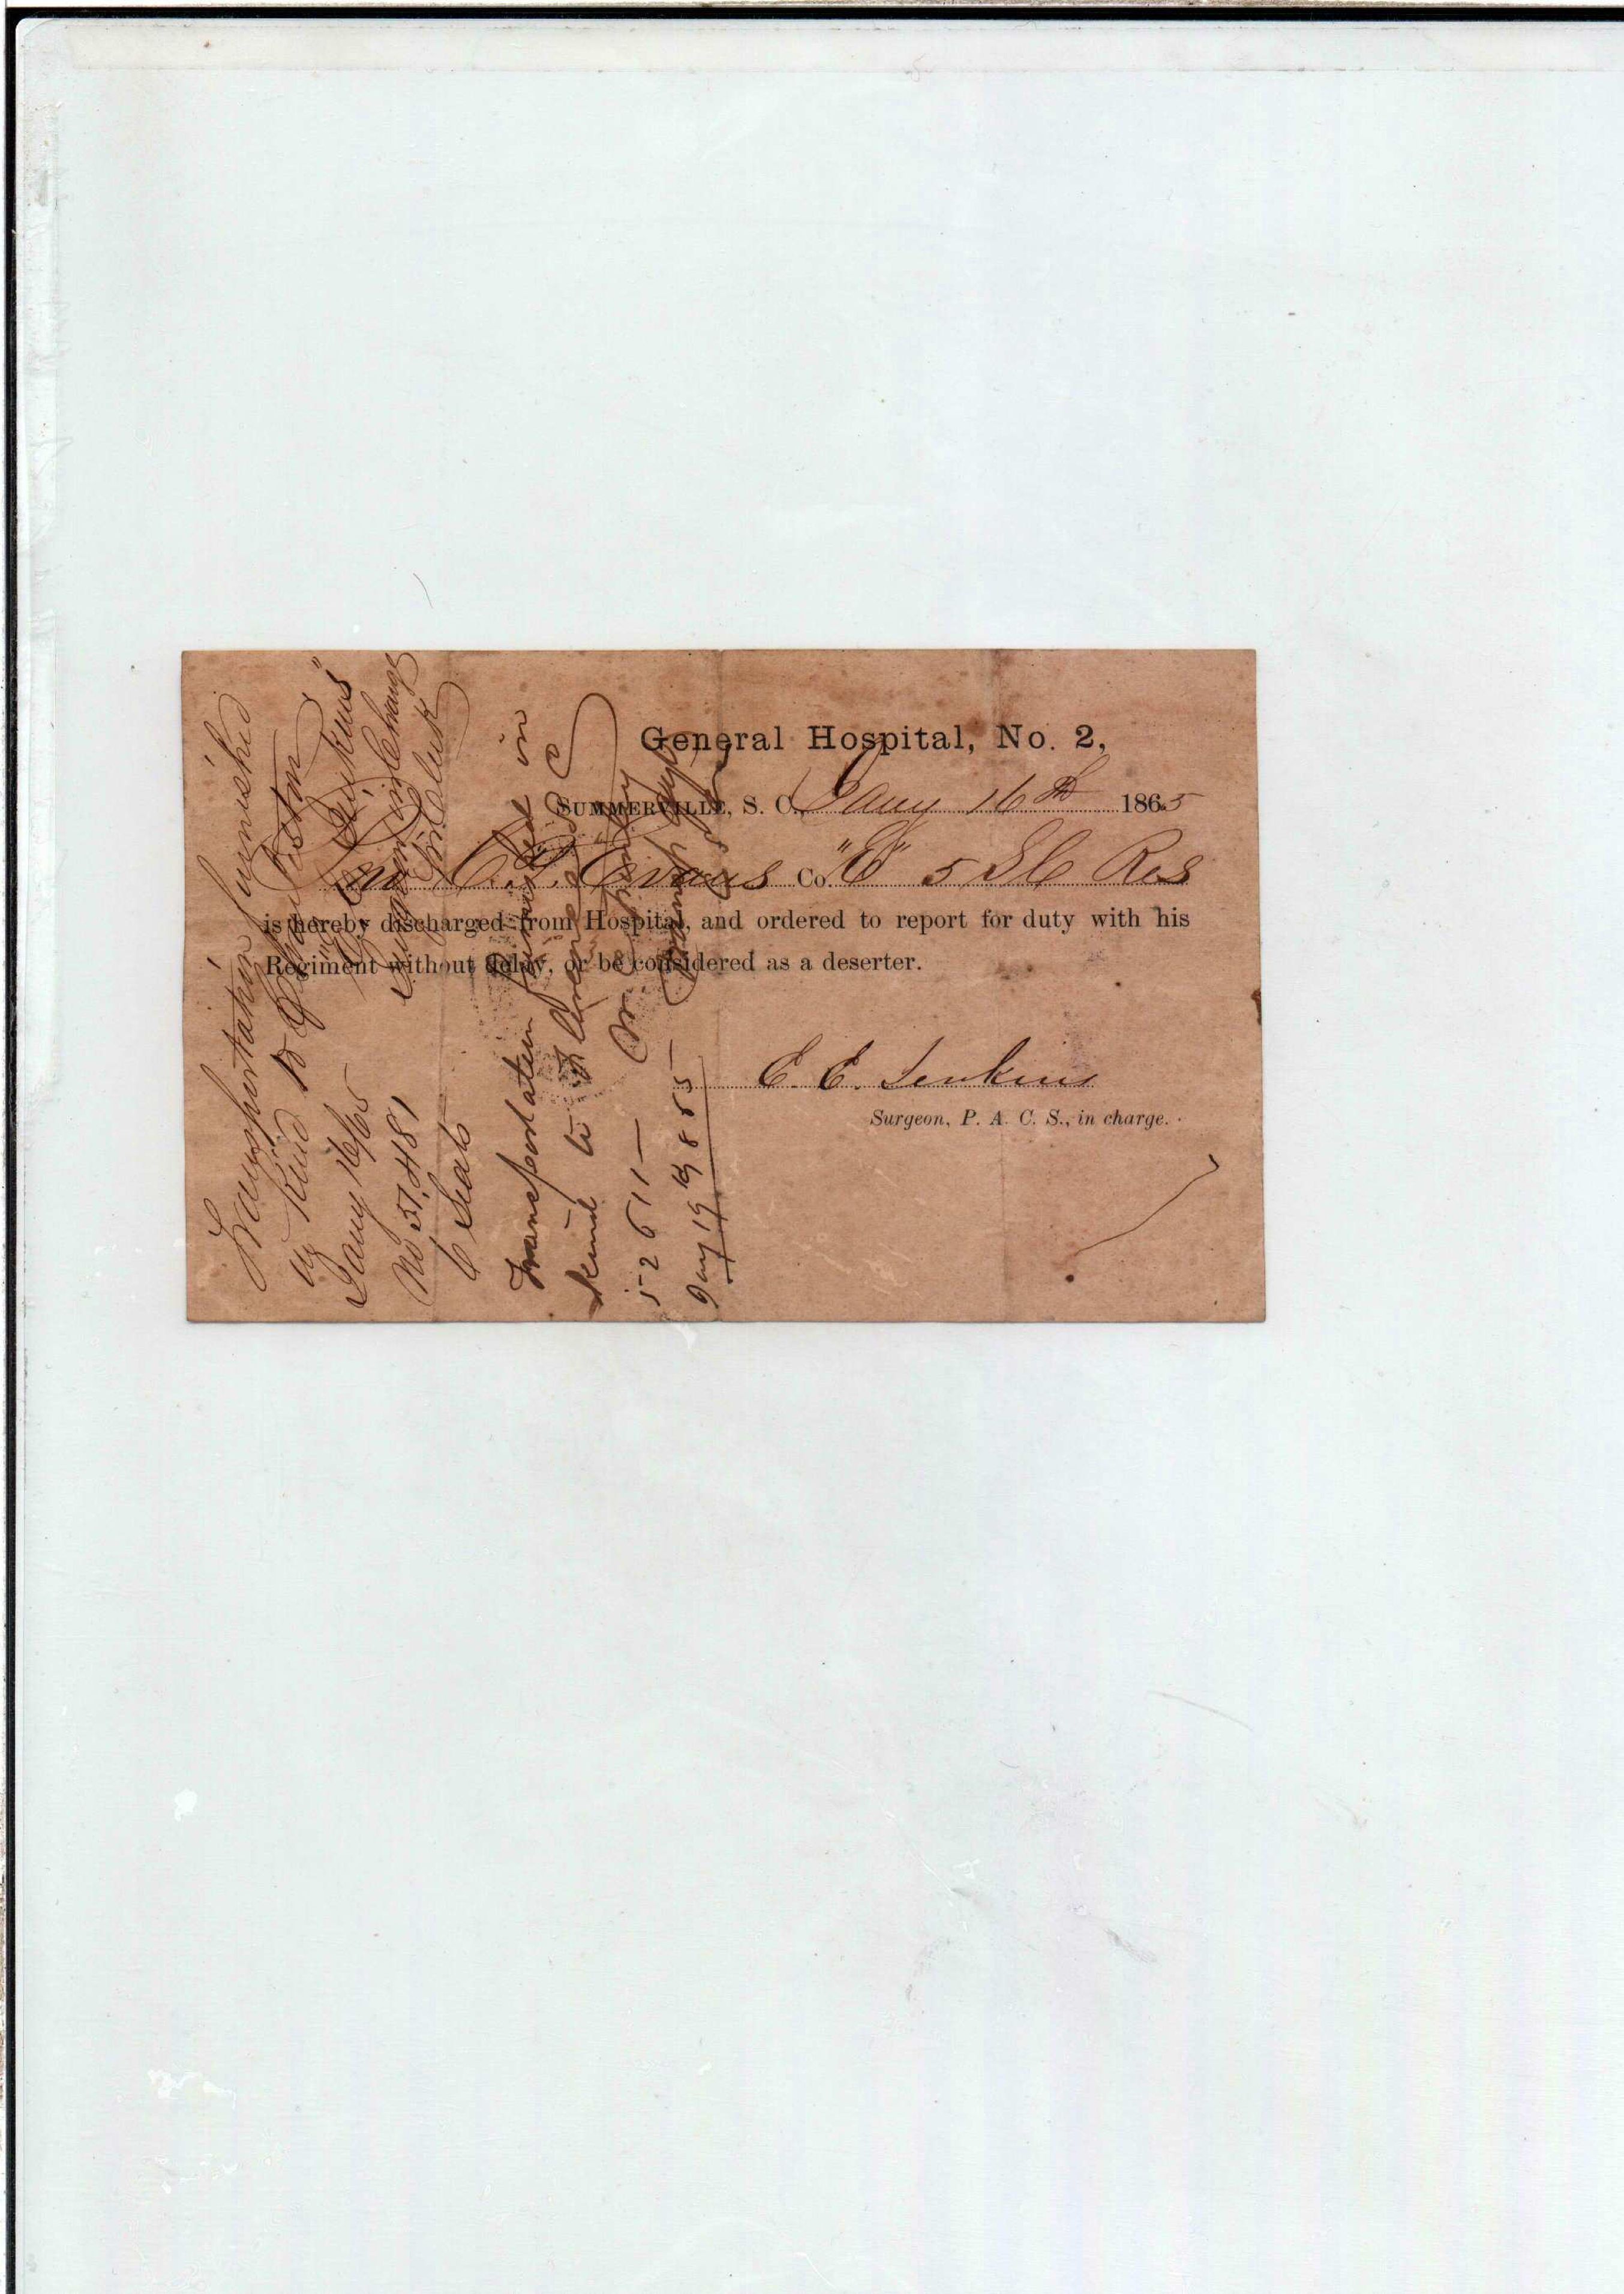 General Hospital, No. 2,
SUMMERVILLE, S. C., Jany 16th 1865
C. P. Evans Co. "E" 5 SC Res
is hereby discharged from Hospital, and ordered to report for duty with his
Regiment without delay, or be considered as a deserter.
E. E. Jenkins
Surgeon, P. A. C. S., in charge.
Transportation furnished
in Kind to Charleston
Jany 16/65 E. E. Jenkins
No 57,481 Surgeon in Charge
Transportation furnished in
Kind to Florence S C
52611
Jany 19th 1865